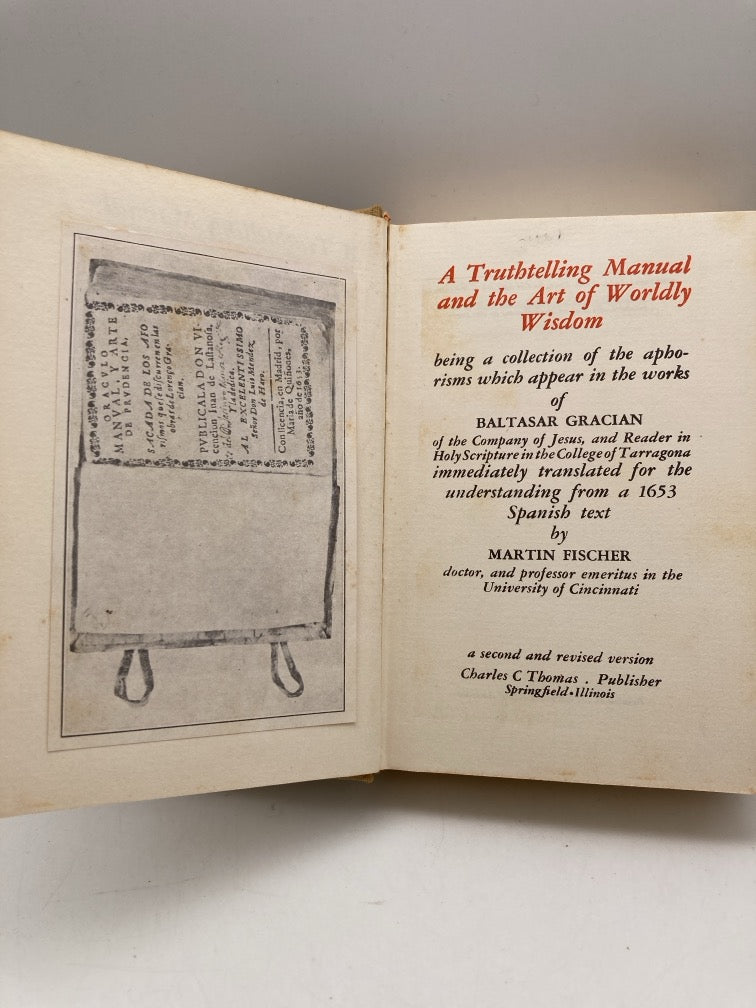 ORACVLO
MANVAL, Y ARTE
DE PRVDENCIA,
SACADA DE LOS AFO
rismos que se discurren en las
obras de Lorenço Gra-
cian.
PVBLICALA DON VI-
cencius Iuan de Lastanosa,
Y la dedica.
AL EXCELENTISSIMO
Señor Don Luis Mendez
de Haro.
Con licencia, en Madrid, por
Maria de Quiñones,
año de 1653.
A Truthtelling Manual
and the Art of Worldly
Wisdom
being a collection of the apho-
risms which appear in the works
of
BALTASAR GRACIAN
of the Company of Jesus, and Reader in
Holy Scripture in the College of Tarragona
immediately translated for the
understanding from a 1653
Spanish text
by
MARTIN FISCHER
doctor, and professor emeritus in the
University of Cincinnati
a second and revised version
Charles C Thomas . Publisher
Springfield • Illinois